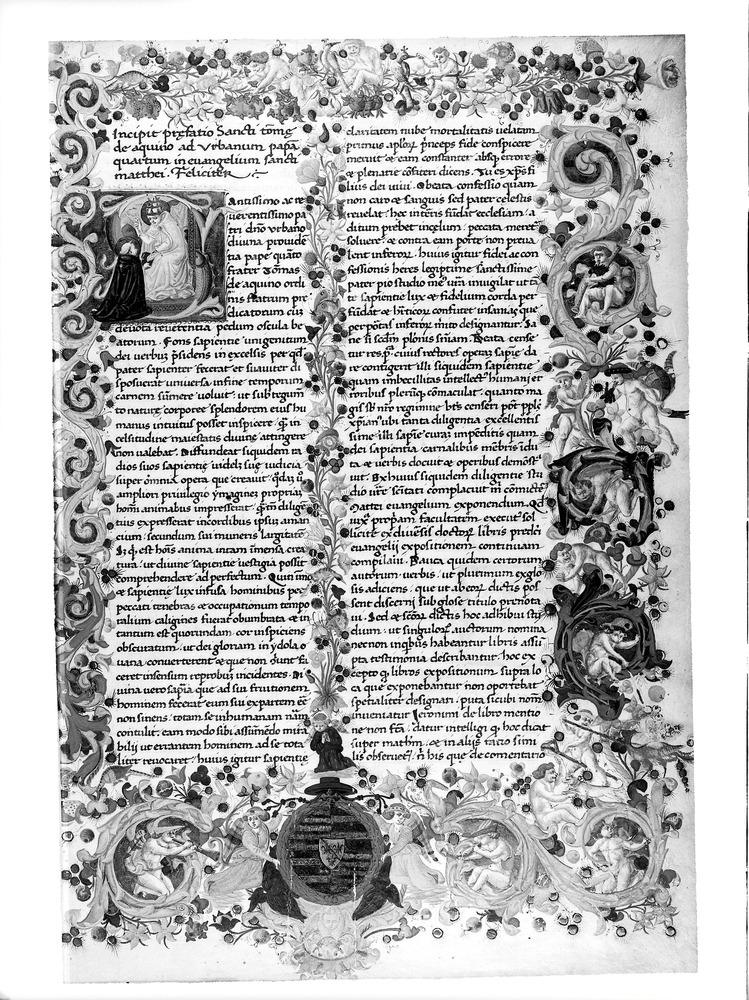 Incipit prefatio Sancti tome
de aquino ad Vrbanum papa
quartum in euangelium sancti
matthei. Feliciter
Sanctissimo ac re
uerentissimo pa
tri dño Vrbano
diuina prouide
tia pape quarto
frater Tomas
de aquino ordi
nis fratrum pre
dicatorum cuz
deuota reuerentia pedum oscula be
atorum. Fons sapientie unigenitum
dei uerbuz psidens in excelsis per qd
pater sapienter fecerat et suauiter di
sposuerat uniuersa in fine temporum
carnem sumere uoluit. ut sub tegum
to nature corporee splendorem eius hu
manus intuitus posset inspicere. q in
celsitudine maiestatis diuine attingere
non ualebat. Diffunderat siquidem ra
dios suos sapientie uidelz sue iudicia
super omnia opera que creauit. qdaz u
ampliori priuilegio ymagines propriaz
hom animabus impresserat. qm diligen
tius expresserat in cordibus ipsuz aman
cium. secundum sui muneris largitate
Si q est hois anima in tam imensa crea
tura. ut diuine sapientie uestigia possit
comprehendere ad perfectum. Quinimo
& sapientie lux infusa hominibus per
peccati tenebras & occupationum tempo
ralium caligines fuerat obumbrata & in
tantum est quorundam cor insipiens
obscuratum. ut dei gloriam in ydola o
uana conuerterent & que non sunt fa
cerent in sensum reprobuz incidentes. Di
uina uero sapia que ad sui fruitionem
hominem fecerat eum sui expartem eē
non sinens. totam se in humanam nām
contulit. eam modo sibi assumēdo mira
bili ut errantem hominem ad se tota
liter reuocaret. huius igitur sapientie
claritatem nube mortalitatis uelatam
primus aploz princeps fide conspicere
meruit & eam constanter absq errore
& plenarie cōfiteri dicens. Tu es xps fi
lius dei uiui. O beata confessio quam
non caro & sanguis sed pater celestis
reuelat. hec in terris fūdat ecclesiam. a
ditum prebet in celum. peccata meret
soluere. & contra eam porte non preua
lent inferoz. huius igitur fidei ac con
fessionis heres legiptime sanctissime
pater pio studio mens ura inuigilat ut tā
te sapientie lux & fidelium corda per
fūdat & hereticoz confutet insanias que
per portas inferoz merito designantur. Sa
ne si secdm plonis sniam. Beata cense
tur resp. cuius rectores operaz sapie da
re contigerit illi siquidem sapientie
quam imbecillitas intellectus humani er
roribus plerūq cōmaculat. quanto ma
gis sub nro regimine bts censeri pot pplus
xpian ubi tanta diligentia excellentis
sime illi sapie curaz impēditis quam
dei sapientia carnalibus mēbris idu
ta & uerbis docuit & operibus demōst
uit. Ex huius siquidem diligentie stu
dio ure sctitati complacuit m cōmictē
Mattei euangelium exponendum. Qd
iux propam facultatem executus sol
licite ex diuersis doctoz libris predci
euangelii expositionem continuam
compilaui. Pauca quidem certorum
autorum uerbis ut plurimum ex glo
sis adiciens. que ut ab eoz dictis pos
sent discerni sub glose titulo prenota
ui. Sed & sctoz dictis hoc adhibui stu
dium. ut singuloz auctorum nomina
nec non in qbus habeantur libris assū
pta testimonia describantur. hoc ex
cepto q libros expositionum supra lo
ca que exponebantur non oportebat
spetialiter designari. puta sicubi nom
inueniatur Ieronimi de libro mentio
ne non fca. datur intelligi q hoc dicat
super mathm. & in aliis ratio simi
lis obseruet. In his que de comentario